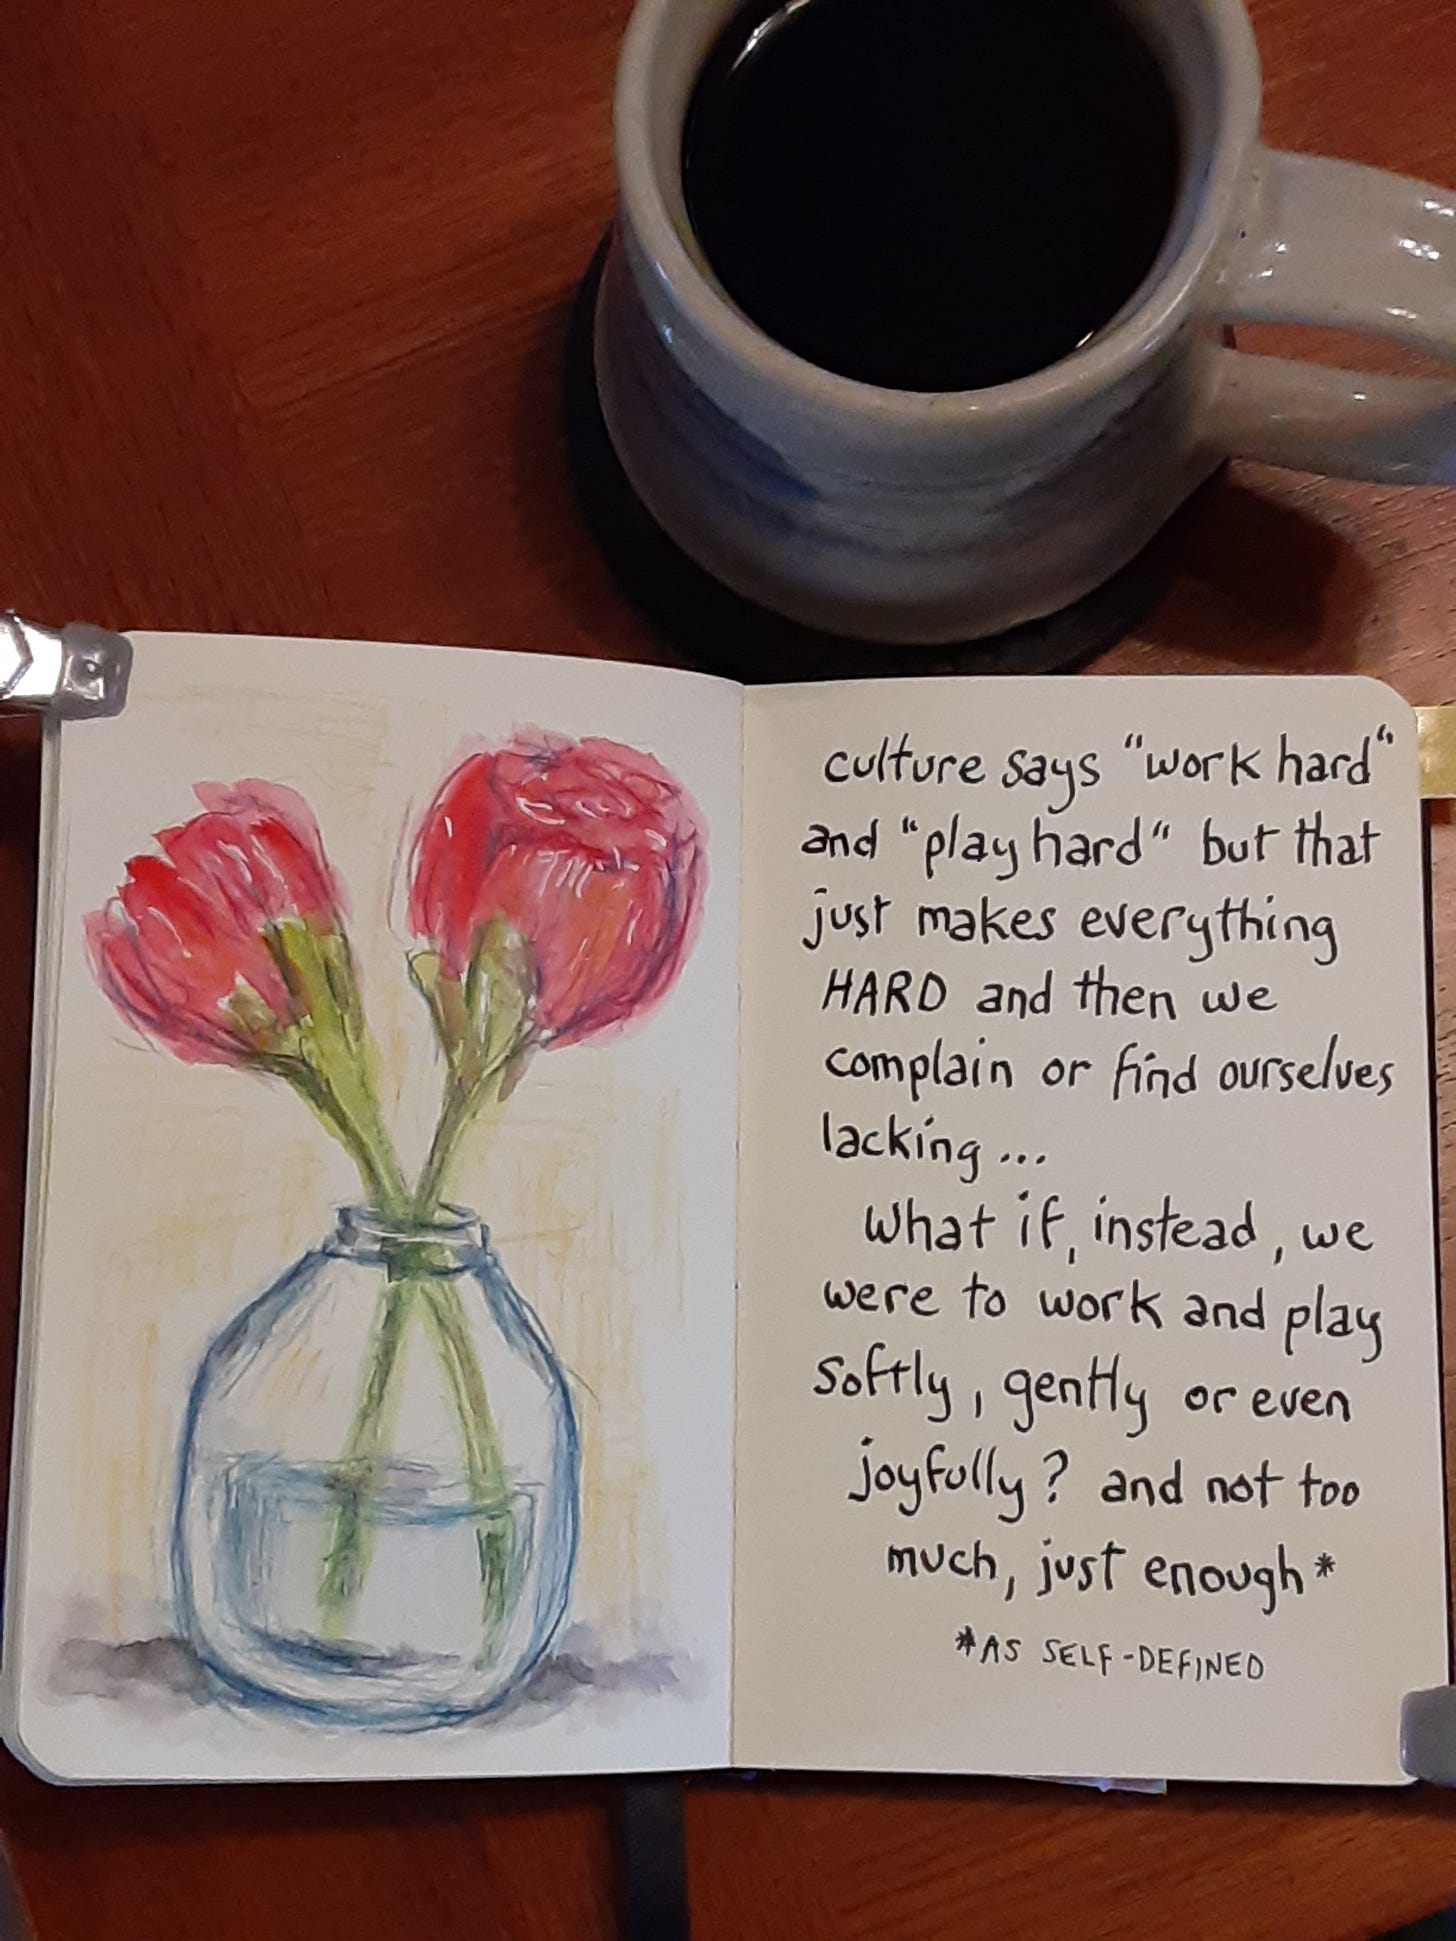 culture says "work hard"
and "play hard" but that
just makes everything
HARD and then we
complain or find ourselves
lacking...
What if, instead, we
were to work and play
softly, gently or even
joyfully? and not too
much, just enough*
*AS SELF-DEFINED